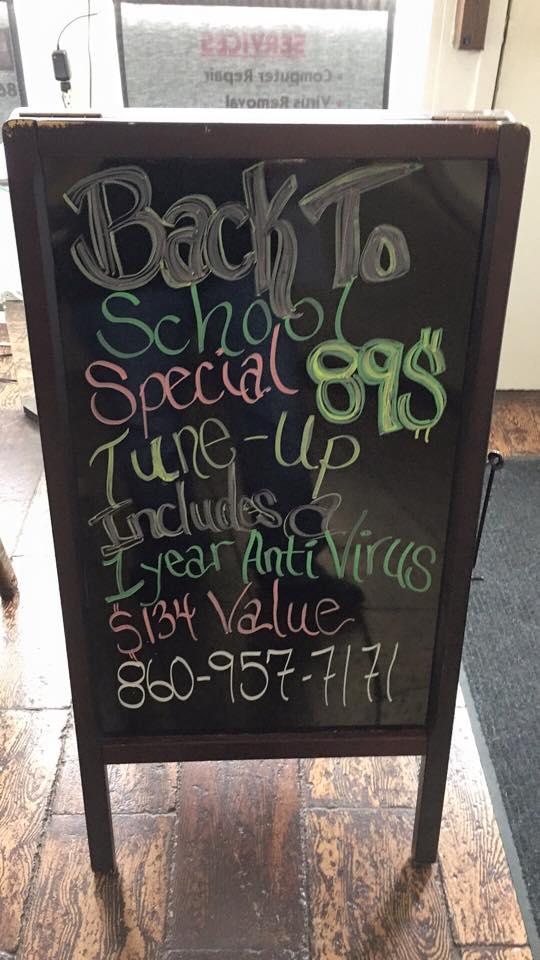 SERVICES
• Computer Repair
• Virus Removal
Back To
School
Special 89$
Tune-Up
Includes a
1 year Anti Virus
$134 Value
860-957-7171